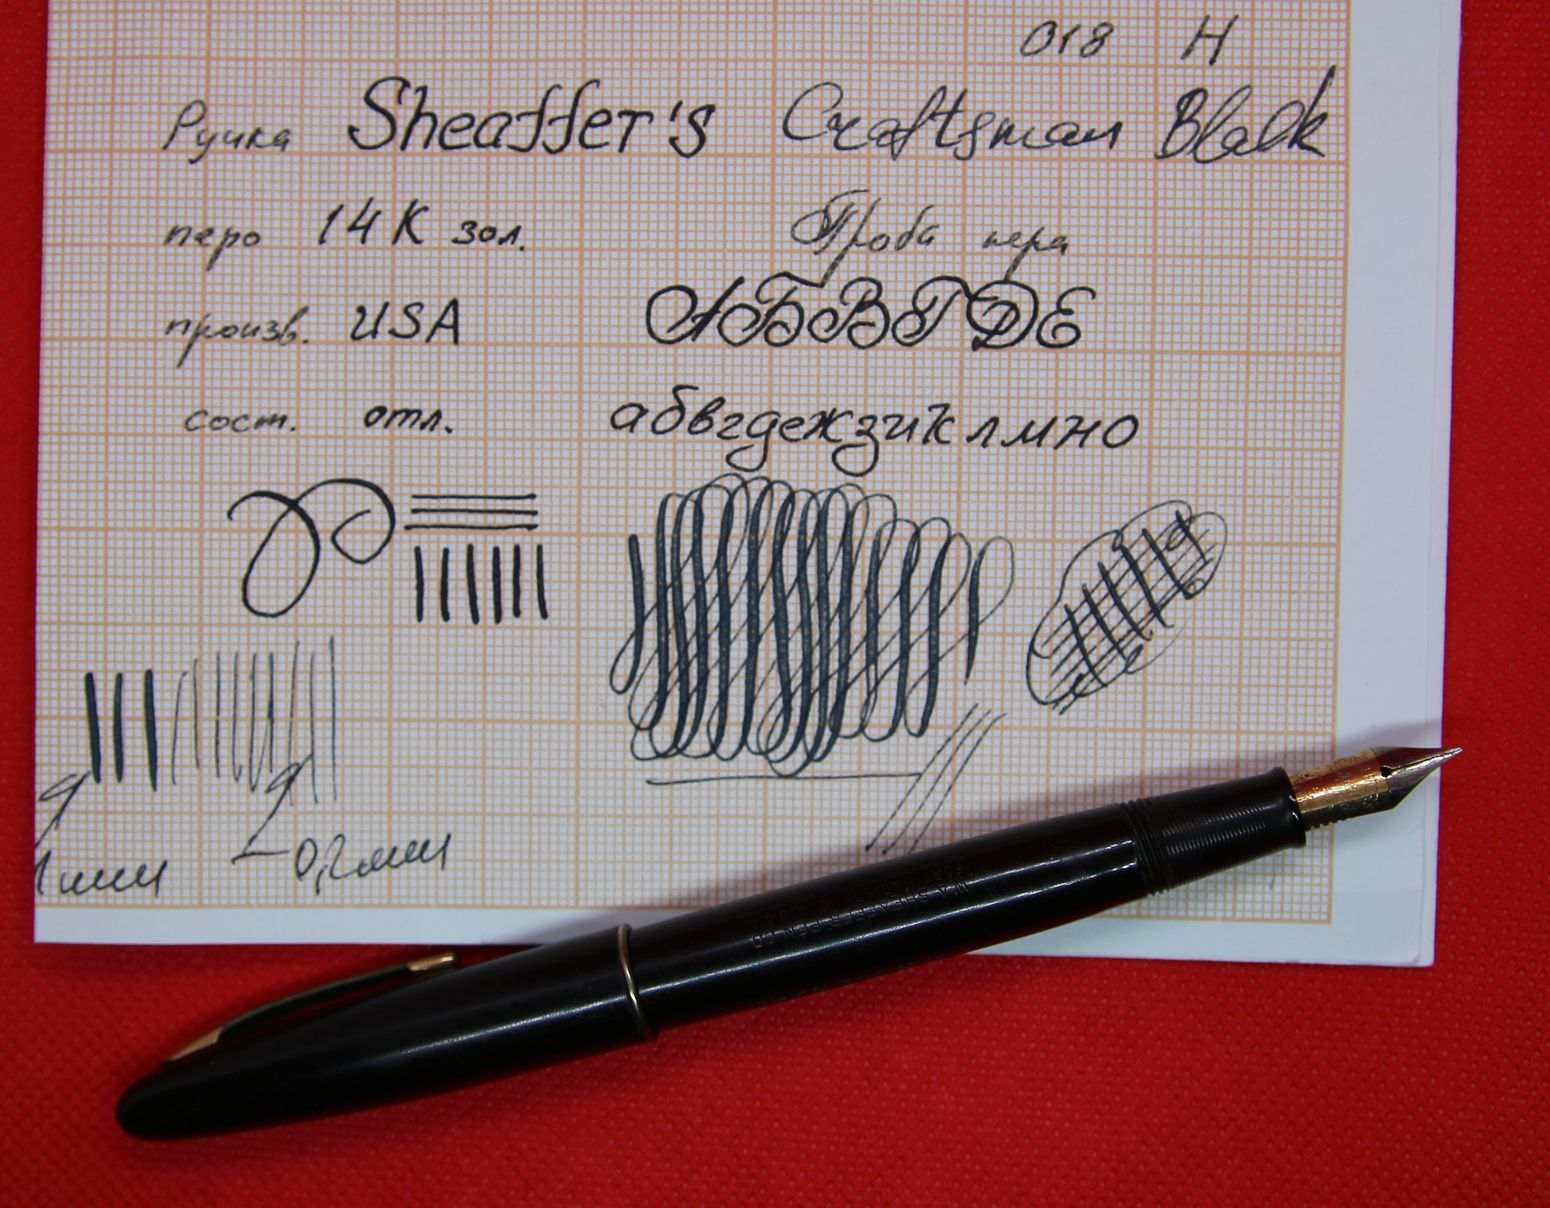 018 H
Ручка Sheaffer's Craftsman Blalk
перо 14K зол. Проба пера
произв. USA АБВГДЕ
сост. отл. абвгдежзиклмно
1мм 0,2мм